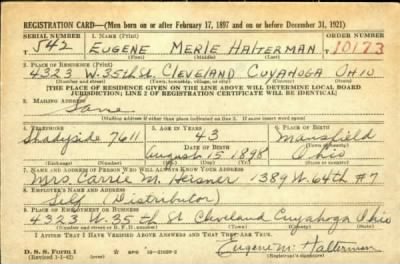 REGISTRATION CARD—(Men born on or after February 17, 1897 and on or before December 31, 1921)
SERIAL NUMBER 1. NAME (Print) ORDER NUMBER
T 542 EUGENE MERLE HALTERMAN T10173
(First) (Middle) (Last)
2. PLACE OF RESIDENCE (Print)
4323 W. 35th St. CLEVELAND CUYAHOGA OHIO
(Number and street) (Town, township, village, or city) (County) (State)
[THE PLACE OF RESIDENCE GIVEN ON THE LINE ABOVE WILL DETERMINE LOCAL BOARD
JURISDICTION; LINE 2 OF REGISTRATION CERTIFICATE WILL BE IDENTICAL]
3. MAILING ADDRESS
Same
[Mailing address if other than place indicated on line 2. If same insert word same]
4. TELEPHONE 5. AGE IN YEARS 6. PLACE OF BIRTH
Shadyside 7611 43 Mansfield
DATE OF BIRTH (Town or county)
August 15 1898 Ohio
(Exchange) (Number) (Mo.) (Day) (Yr.) (State or country)
7. NAME AND ADDRESS OF PERSON WHO WILL ALWAYS KNOW YOUR ADDRESS
Mrs. Carrie M. Heisner 1389 W. 64th #7
8. EMPLOYER'S NAME AND ADDRESS
Self (Distributor)
9. PLACE OF EMPLOYMENT OR BUSINESS
4323 W. 35th St Cleveland Cuyahoga Ohio
(Number and street or R. F. D. number) (Town) (County) (State)
I AFFIRM THAT I HAVE VERIFIED ABOVE ANSWERS AND THAT THEY ARE TRUE.
D. S. S. Form 1 Eugene M. Halterman
(Revised 1-1-42) (over) (Registrant's signature)